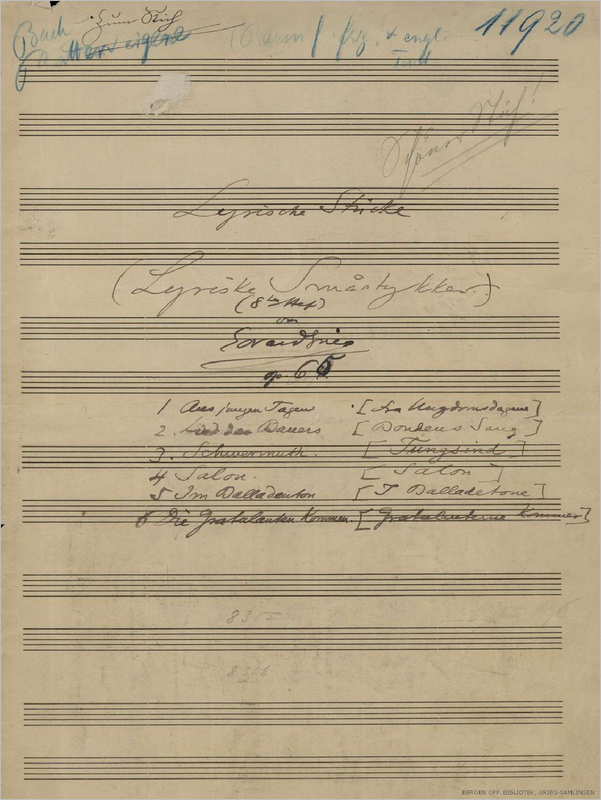 Zum Stich
Bach
11920
Lyrische Stücke
(Lyriske Småstykker)
(8tes Heft)
von
Edvard Grieg
op. 65
1 Aus jungen Tagen [Fra Ungdomsdagene]
2. Lied des Bauers [Bondens Sang]
3. Schwermuth. [Tungsind]
4 Salon. [Salon]
5 Im Balladenton [I Balladetone]
6 Die Gratulanten Kommen. [Gratulanterne Kommer]
8355
8356
BERGEN OFF. BIBLIOTEK, GRIEG-SAMLINGEN